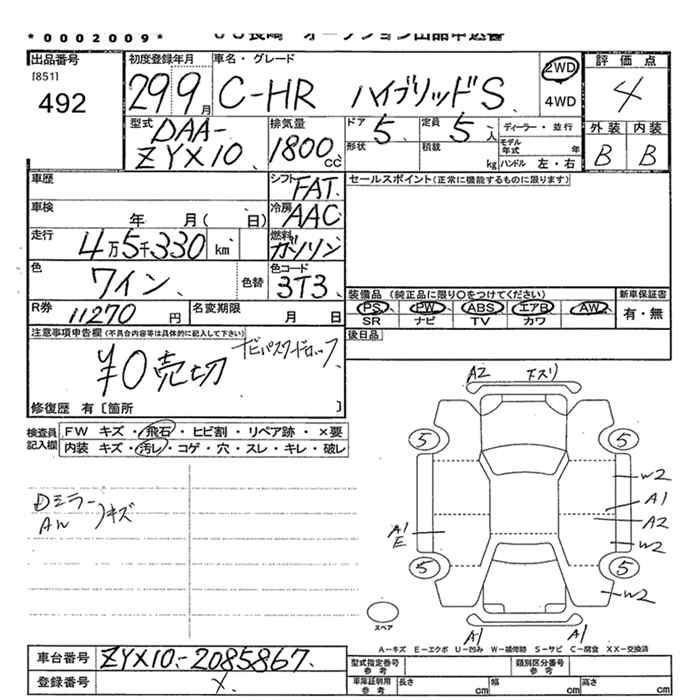 *0002009*
JU長崎 オークション出品申込書
出品番号
[851]
492
初度登録年月
29 9月
車名・グレード
C-HR ハイブリッドS
2WD
4WD
評価点
4
外装 内装
B B
型式
DAA-
ZYX10
排気量
1800cc
ドア 5
定員 5人
形状
積載 kg
ディーラー・並行
モデル年式 年
ハンドル 左・右
車歴
シフト FAT
セールスポイント(正常に機能するものに限ります)
車検 年 月( 日)
冷房 AAC
走行 4万5千330 km
燃料 ガソリン
色 ワイン
色替
色コード 3T3
R券 11270円
名変期限 月 日
装備品 (純正品に限り○をつけてください)
新車保証書
PS PW ABS エアB AW
SR ナビ TV カワ
有・無
注意事項申告欄(不具合内容等は具体的に記入して下さい)
後日品
¥0売切
ナビパスワードロック
修復歴 有〔箇所 〕
検査員記入欄
FW キズ・飛石・ヒビ割・リペア跡・×要
内装 キズ・汚レ・コゲ・穴・スレ・キレ・破レ
Dミラー
AW
キズ
A2 キズリ
5 5
W2
A1
A1
E
A2
W2
5 5
W2
スペア
A1 A1
A-キズ E-エクボ U-凹み W-補修跡 S-サビ C-腐食 XX-交換済
車台番号 ZYX10-2085867
登録番号 X
型式指定番号 参考
類別区分番号 参考
車庫証明用 参考
長さ cm
幅 cm
高さ cm